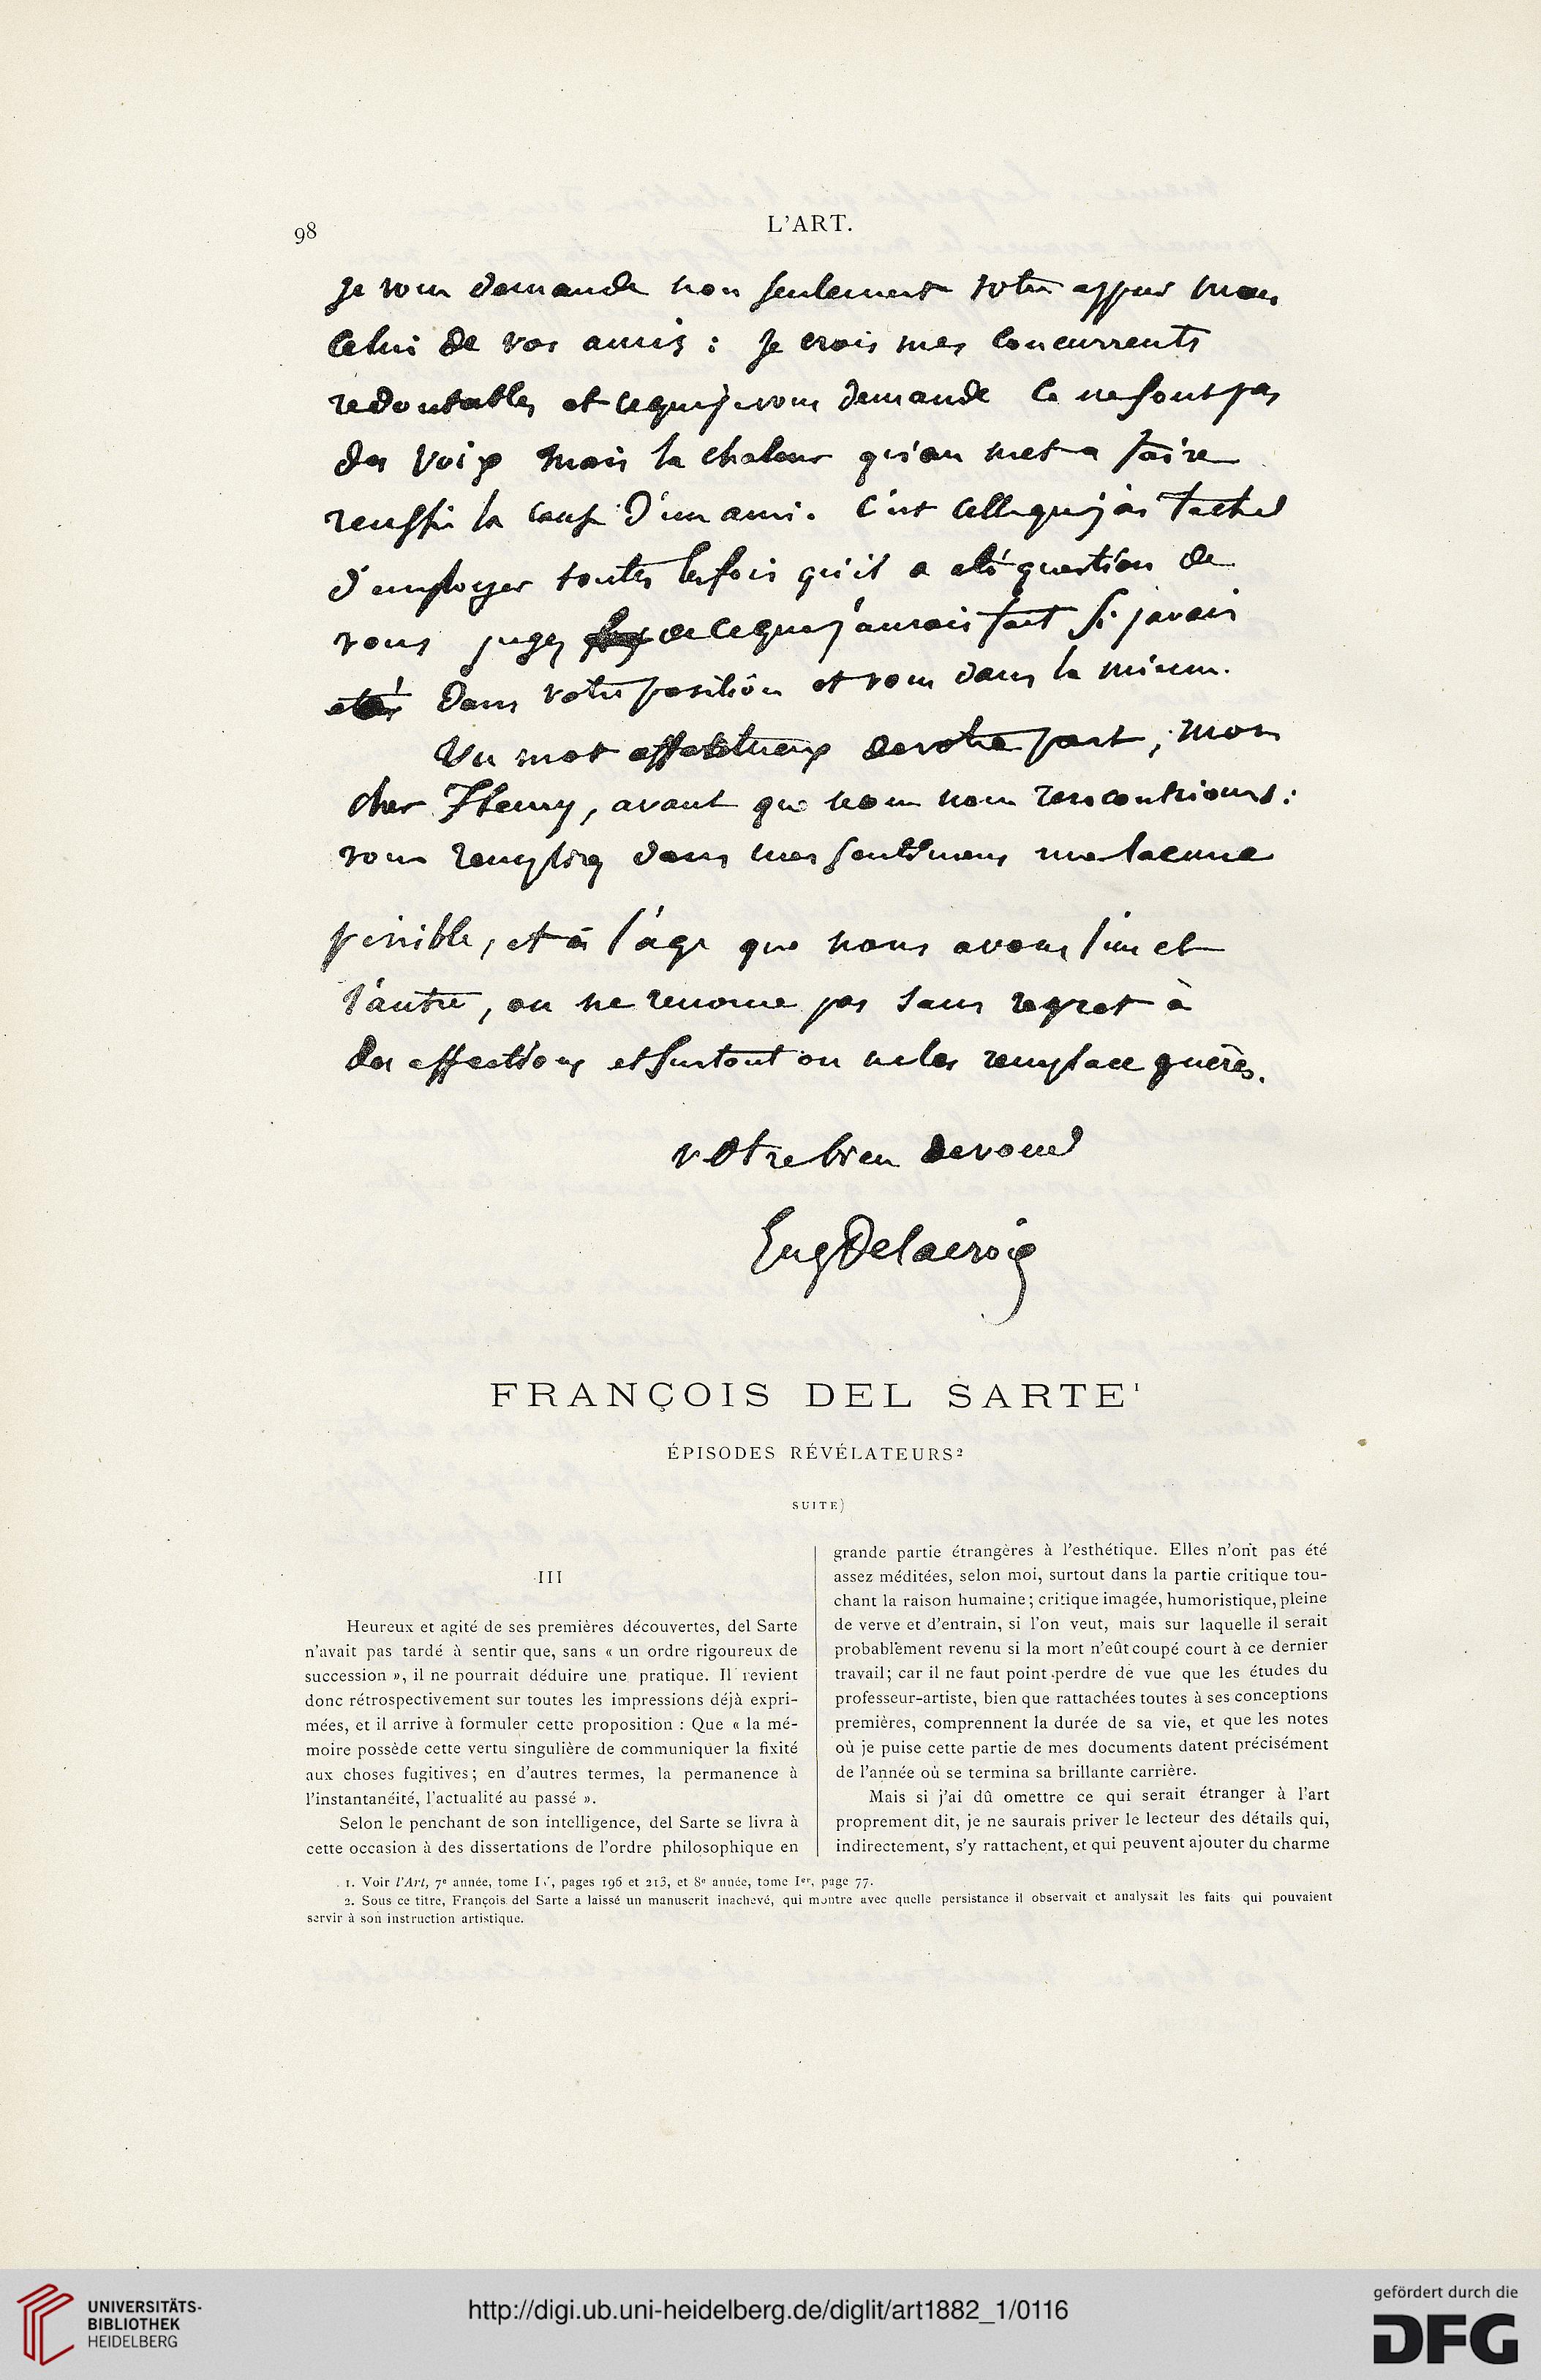 98
L'ART.
Je vous demande non seulement votre appui mais
celui de vos amis : je crois mes concurrents
redoutables et ce que je vous demande ce ne sont pas
des voix mais la chaleur qu'on met a faire
reussir la cause d'un ami. C'est celle que j'ai taché
d'employer toutes les fois qu'il a été question de
vous jugez de ce que j'aurais fait si j'avais
été dans votre position et vous dans la mienne.
Un mot affectueux de votre part, mon
cher , avant que nous nous rencontrions :
vous remplirez dans mes sentimens une lacune
penible, et à l'âge que nous avons l'un et
l'autre, on ne renonce pas sans regret à
des affections et surtout on ne les remplace guères.
votre bien devoué
EugDelacroix
FRANÇOIS DEL SARTE¹
ÉPISODES RÉVÉLATEURS²
SUITE)
III
Heureux et agité de ses premières découvertes, del Sarte
n'avait pas tardé à sentir que, sans « un ordre rigoureux de
succession », il ne pourrait déduire une pratique. Il revient
donc rétrospectivement sur toutes les impressions déjà expri-
mées, et il arrive à formuler cette proposition : Que « la mé-
moire possède cette vertu singulière de communiquer la fixité
aux choses fugitives; en d'autres termes, la permanence à
l'instantanéité, l'actualité au passé ».
Selon le penchant de son intelligence, del Sarte se livra à
cette occasion à des dissertations de l'ordre philosophique en
grande partie étrangères à l'esthétique. Elles n'ont pas été
assez méditées, selon moi, surtout dans la partie critique tou-
chant la raison humaine; critique imagée, humoristique, pleine
de verve et d'entrain, si l'on veut, mais sur laquelle il serait
probablement revenu si la mort n'eût coupé court à ce dernier
travail; car il ne faut point perdre de vue que les études du
professeur-artiste, bien que rattachées toutes à ses conceptions
premières, comprennent la durée de sa vie, et que les notes
où je puise cette partie de mes documents datent précisément
de l'année où se termina sa brillante carrière.
Mais si j'ai dû omettre ce qui serait étranger à l'art
proprement dit, je ne saurais priver le lecteur des détails qui,
indirectement, s'y rattachent, et qui peuvent ajouter du charme
1. Voir l'Art, 7e année, tome , pages 196 et 213, et 8e année, tome Ier, page 77.
2. Sous ce titre, François del Sarte a laissé un manuscrit inachevé, qui montre avec quelle persistance il observait et analysait les faits qui pouvaient
servir à son instruction artistique.
UNIVERSITÄTS-
BIBLIOTHEK
HEIDELBERG
http://digi.ub.uni-heidelberg.de/diglit/art1882_1/0116
gefördert durch die
DFG